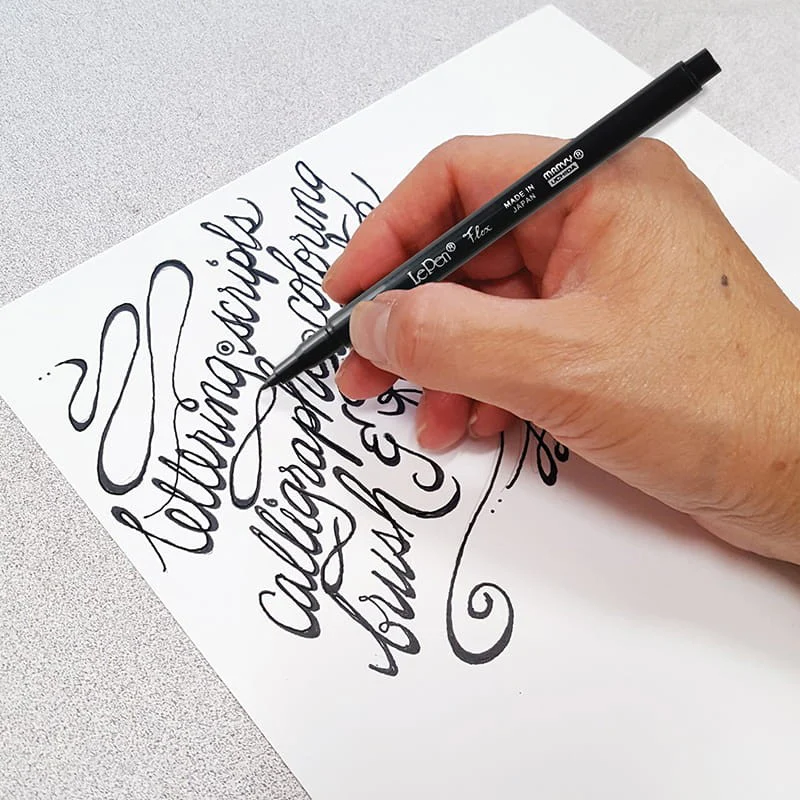 lettering · scripts
calligraphy · coloring
brush &
LePen® Flex
MADE IN
JAPAN
MARVY®
UCHIDA